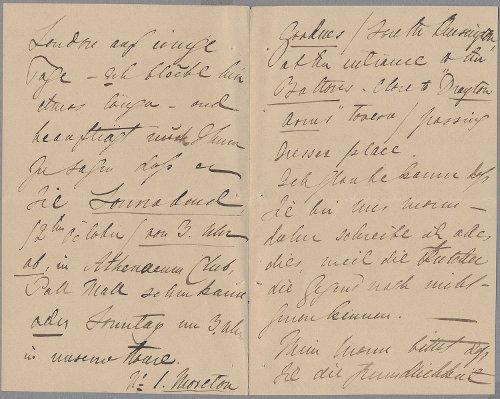 London auf einige
Tage – Ich bleibe hier
etwas länger – und
beauftragt mich Ihnen
zu sagen daß er
Sie Sonnabend,
(2ten October) von 3. Uhr
ab, in Athenaeum Club,
Pall Mall sehen kann
oder Sonntag um 3. Uhr
in unserem Hause.
No 1. Moreton
Gardens / South Kensington,
at the entrance to the
Boltons – close to "Drayton
Arms" Tavern / passing
Dresser place.
Ich glaube kaum daß
Sie bei uns waren –
daher schreibe ich alles
dies, weil die Kutscher
die Gegend noch nicht
genau kennen.
Mein Mann bittet daß
Sie die Freundlichkeit